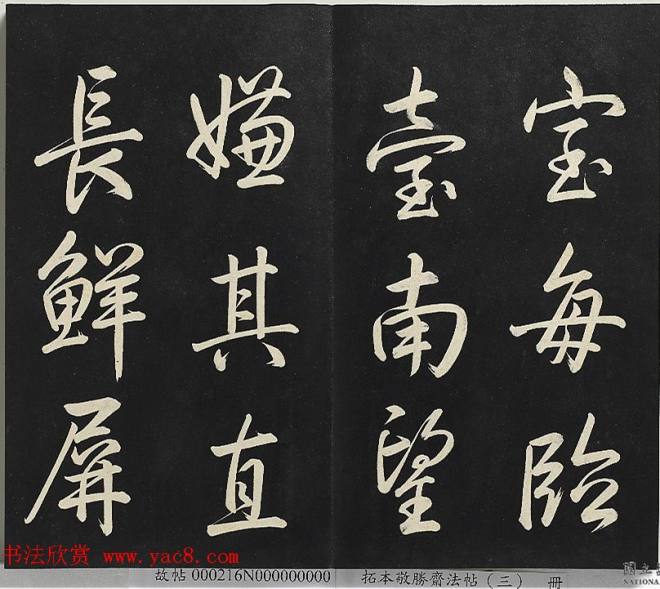 室每臨
臺南望
嫌其直
長鮮屏
书法欣赏 www.yac8.com
故帖 000216N000000000
拓本敬勝齋法帖 (三) 冊
國立
NATIONA